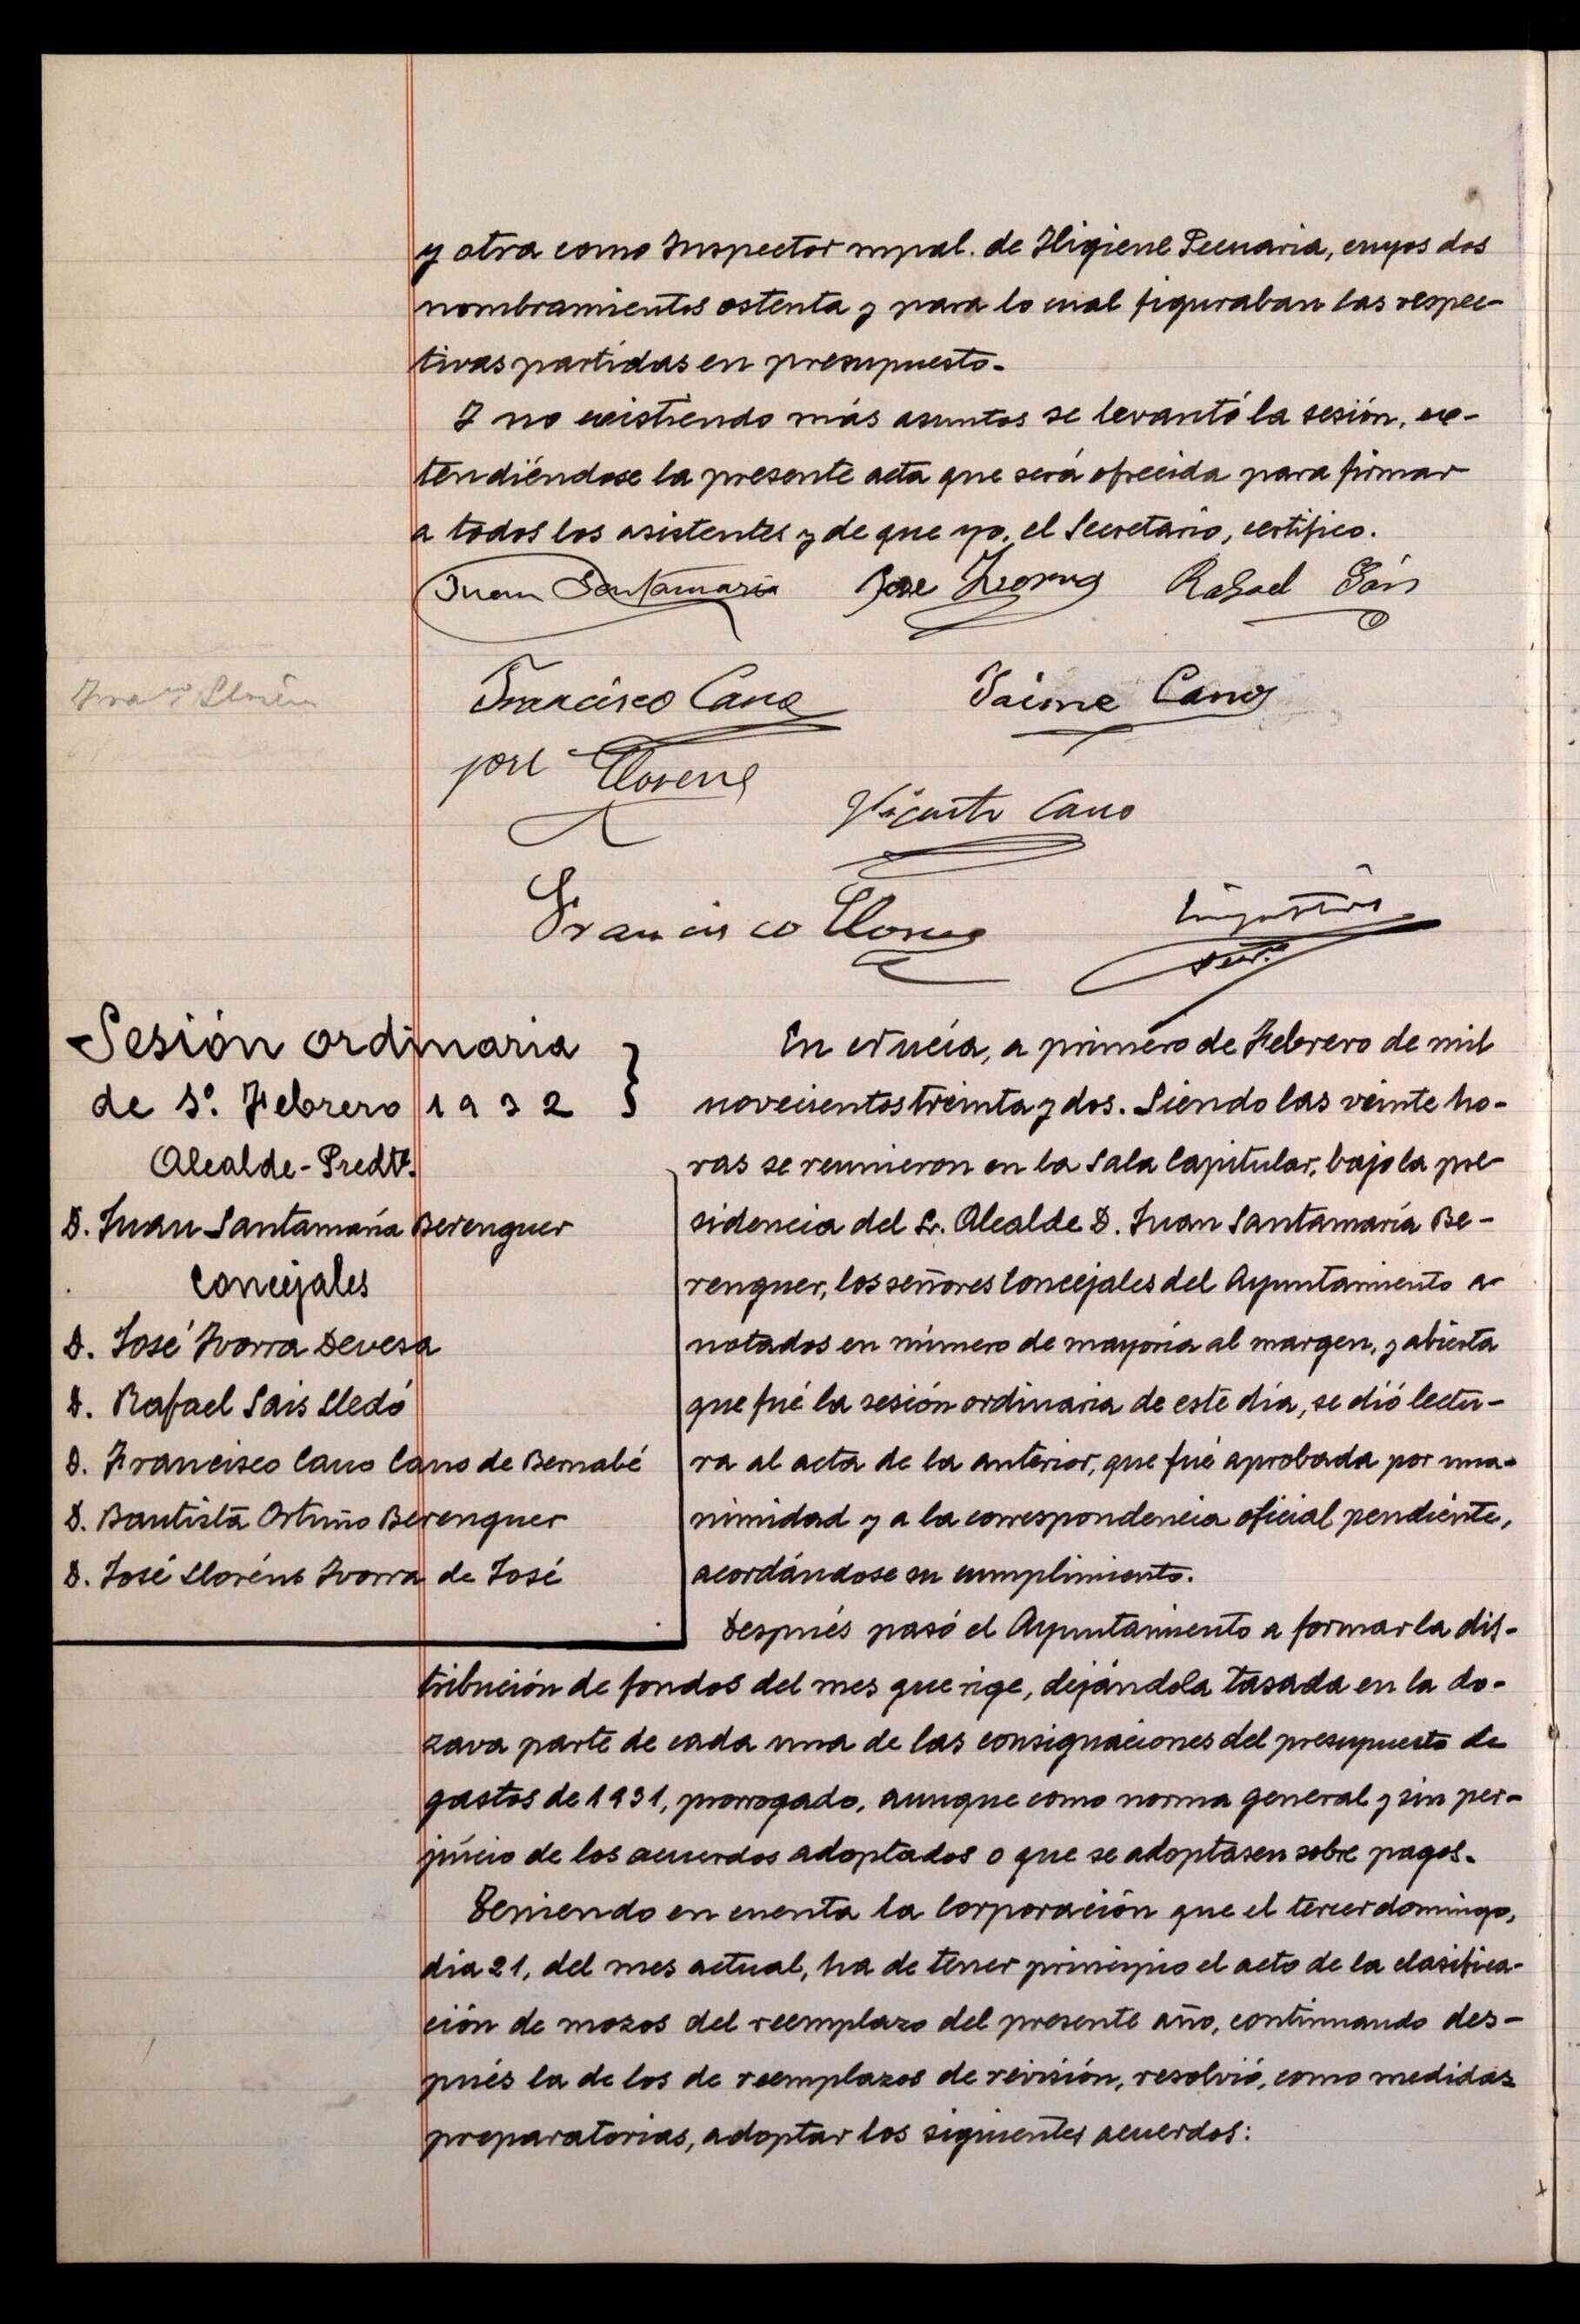 y otra como Inspector mpal. de Higiene Pecuaria, cuyos dos
nombramientos ostenta y para lo cual figuraban las respec-
tivas partidas en presupuesto.
Y no existiendo más asuntos se levantó la sesión, ex-
tendiéndose la presente acta que será ofrecida para firmar
a todos los asistentes y de que yo, el Secretario, certifico.
Juan Santamaria Jose Rafael Sais
Francisco Cano Jaime Cano
José Llorens
Vicente Cano
Francisco Llorens
Sesión ordinaria
de 1º. Febrero 1932
Alcalde-Predte.
D. Juan Santamaría Berenguer
Concejales
D. José Ivorra Devesa
D. Rafael Sais Lledó
D. Francisco Cano Cano de Bernabé
D. Bautista Ortuño Berenguer
D. José Lloréns Ivorra de José
En Nucía, a primero de Febrero de mil
novecientos treinta y dos. Siendo las veinte ho-
ras se reunieron en la Sala Capitular, bajo la pre-
sidencia del Sr. Alcalde D. Juan Santamaría Be-
renguer, los señores Concejales del Ayuntamiento a-
notados en número de mayoría al margen, y abierta
que fué la sesión ordinaria de este día, se dió lectu-
ra al acta de la anterior, que fué aprobada por una-
nimidad y a la correspondencia oficial pendiente,
acordándose su cumplimiento.
Después pasó el Ayuntamiento a formar la dis-
tribución de fondos del mes que rige, dejándola tasada en la do-
zava parte de cada una de las consignaciones del presupuesto de
gastos de 1931, prorrogado, aunque como norma general y sin per-
júicio de los acuerdos adoptados o que se adoptasen sobre pagos.
Teniendo en cuenta la Corporación que el tercer domingo,
día 21, del mes actual, ha de tener principio el acto de la clasifica-
ción de mozos del reemplazo del presente año, continuando des-
pués la de los de reemplazos de revisión, resolvió, como medidas
preparatorias, adoptar los siguientes acuerdos: